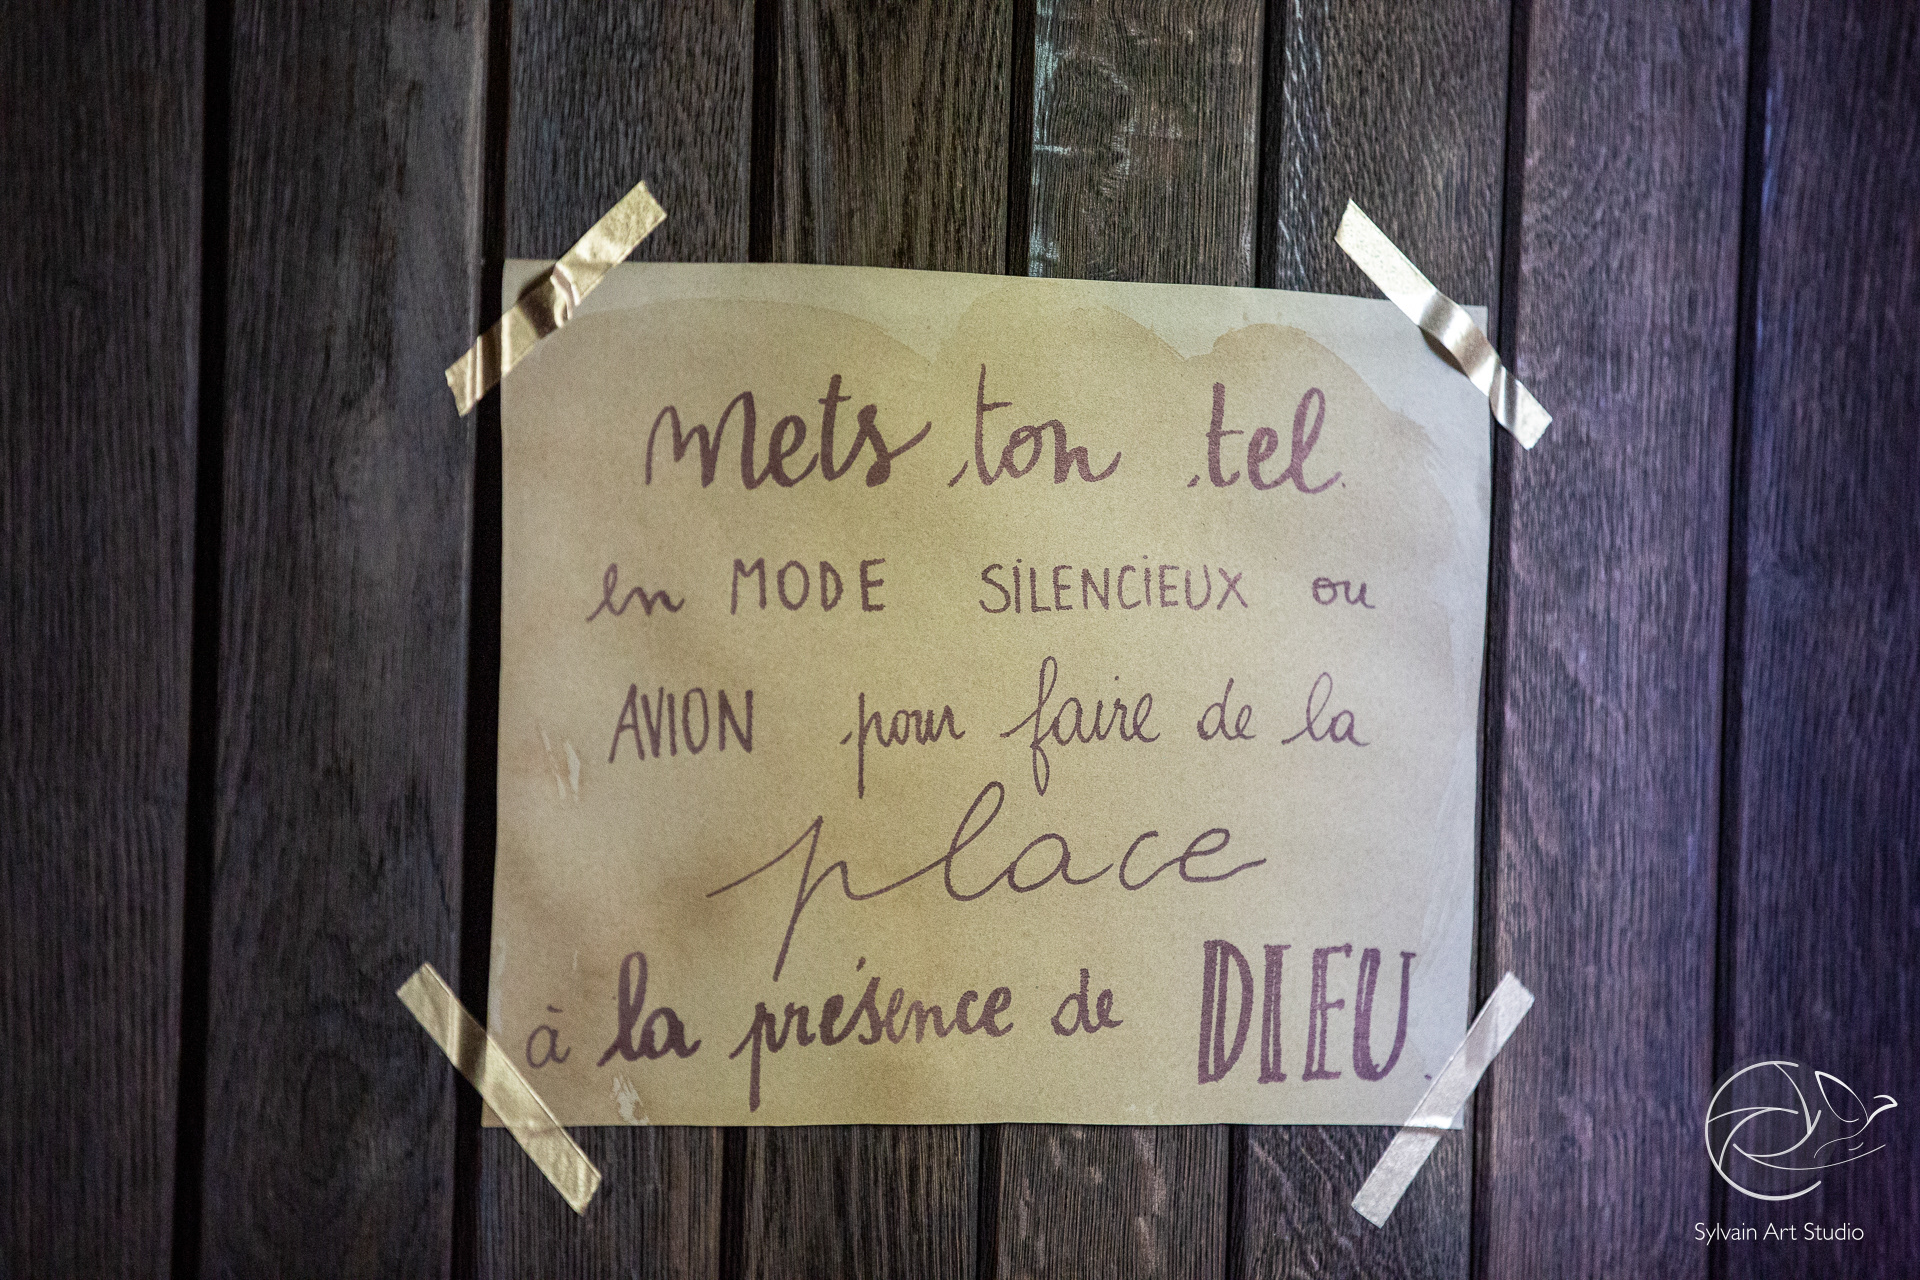 Mets ton tel
en MODE SILENCIEUX ou
AVION pour faire de la
place
à la présence de DIEU.
Sylvain Art Studio